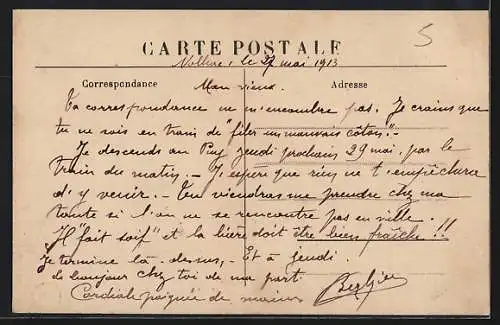 5
CARTE POSTALE
le 27 mai 1913
Correspondance
Adresse
Mon vieux.
Ta correspondance ne m'encombre pas. Je crains que
tu ne sois en train de "filer un mauvais coton".-
Je descends au Puy jeudi prochain 29 mai, par le
train du matin. - J'espère que rien ne t'empêchera
d'y venir. - Tu viendras me prendre chez ma
tante si l'on ne se rencontre pas en ville.
"Il fait soif" et la bière doit être bien fraîche !!
Je termine là-dessus, - Et à jeudi.
le bonjour chez toi de ma part
Cordiale poignée de mains